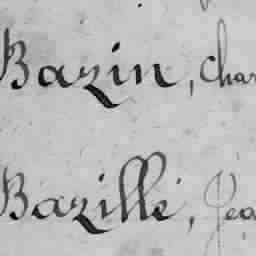 Bazin, Char
Bazille, Jea